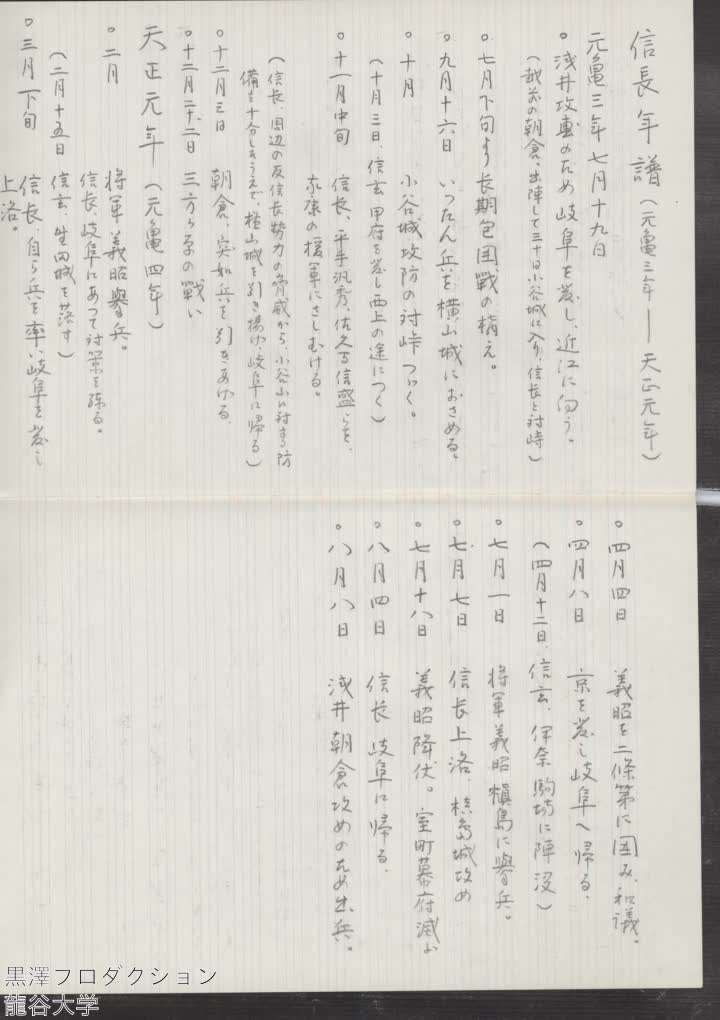 信長年譜(元亀三年——天正元年)
元亀三年七月十九日
○浅井攻車のため岐阜を発し、近江に向う。
(越前の朝倉、出陣して三十日小谷城に入り、信長と対峙)
○七月下旬より長期包囲戦の構え。
○九月十六日 いったん兵を横山城におさめる。
○十月 小谷城攻防の対峠つづく。
(十月三日、信玄甲府を発し西上の途につく)
○十一月中旬 信長、平手汎秀、佐久間信盛らを、
家康の援軍にさしむける。
(信長、周辺の反信長勢力の脅威から、小谷山に対する防
備を十分したうえで、横山城を引き揚げ、岐阜に帰る)
○十二月三日 朝倉、突如兵を引きあげる。
○十二月二十二日 三方ヶ原の戦い
天正元年(元亀四年)
○二月 将軍義昭挙兵。
信長、岐阜にあって対策を練る。
(二月十五日 信玄、野田城を落す)
○三月下旬 信長、自ら兵を率い岐阜を発し
上洛。
○四月四日 義昭を二條第に囲み、和議。
○四月八日 京を発し岐阜へ帰る。
(四月十二日、信玄、伊奈駒場に陣没)
○七月一日 将軍義昭槇島に挙兵。
○七月七日 信長上洛、槙島城攻め
○七月十八日 義昭降伏。室町幕府滅ぶ
○八月四日 信長岐阜に帰る。
○八月八日 浅井朝倉攻めのため出兵。
黒澤プロダクション
龍谷大学